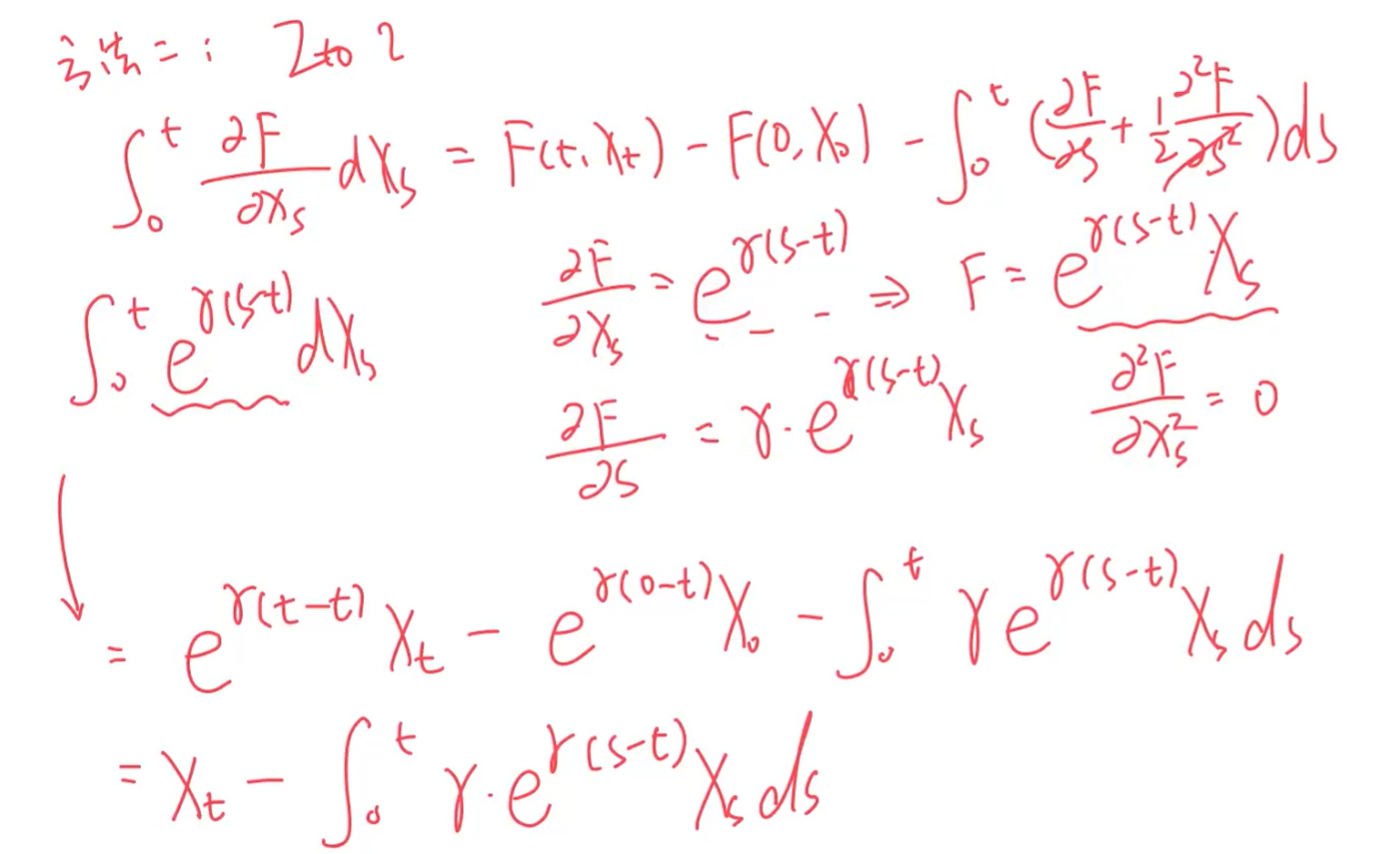 方法二: Ito 2
∫₀ᵗ ∂F/∂Xₛ dXₛ = F(t, Xₜ) - F(0, X₀) - ∫₀ᵗ (∂F/∂s + ½ ∂²F/∂s²) ds
∫₀ᵗ e^{γ(s-t)} dXₛ
∂F/∂Xₛ = e^{γ(s-t)} ⇒ F = e^{γ(s-t)} Xₛ
∂F/∂s = γ · e^{γ(s-t)} Xₛ
∂²F/∂Xₛ² = 0
= e^{γ(t-t)} Xₜ - e^{γ(0-t)} X₀ - ∫₀ᵗ γ e^{γ(s-t)} Xₛ ds
= Xₜ - ∫₀ᵗ γ · e^{γ(s-t)} Xₛ ds